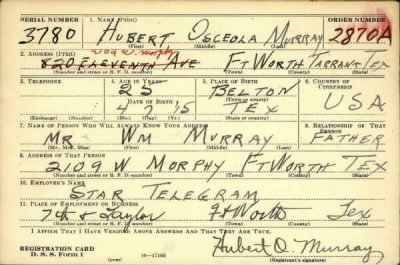 SERIAL NUMBER 1. NAME (Print) ORDER NUMBER
3780 HUBERT OSCEOLA MURRAY 2870A
(First) (Middle) (Last)
2. ADDRESS (Print)
820 ELEVENTH AVE FT WORTH TARRANT TEX
(Number and street or R. F. D. number) (Town) (County) (State)
3. TELEPHONE 4. AGE IN YEARS 5. PLACE OF BIRTH 6. COUNTRY OF CITIZENSHIP
25 BELTON
DATE OF BIRTH (Town or county)
4 7 15 TEX USA
(Exchange) (Number) (Mo.) (Day) (Yr.) (State or country)
7. NAME OF PERSON WHO WILL ALWAYS KNOW YOUR ADDRESS 8. RELATIONSHIP OF THAT PERSON
MR WM MURRAY FATHER
(Mr., Mrs., Miss) (First) (Middle) (Last)
9. ADDRESS OF THAT PERSON
2109 W MORPHY FT WORTH TEX
(Number and street or R. F. D. number) (Town) (County) (State)
10. EMPLOYER'S NAME
STAR TELEGRAM
11. PLACE OF EMPLOYMENT OR BUSINESS
7th & Taylor Ft Worth Tex
(Number and street or R. F. D. number) (Town) (County) (State)
I AFFIRM THAT I HAVE VERIFIED ABOVE ANSWERS AND THAT THEY ARE TRUE.
REGISTRATION CARD Hubert O. Murray
D. S. S. FORM 1 (over) 16—17105 (Registrant's signature)